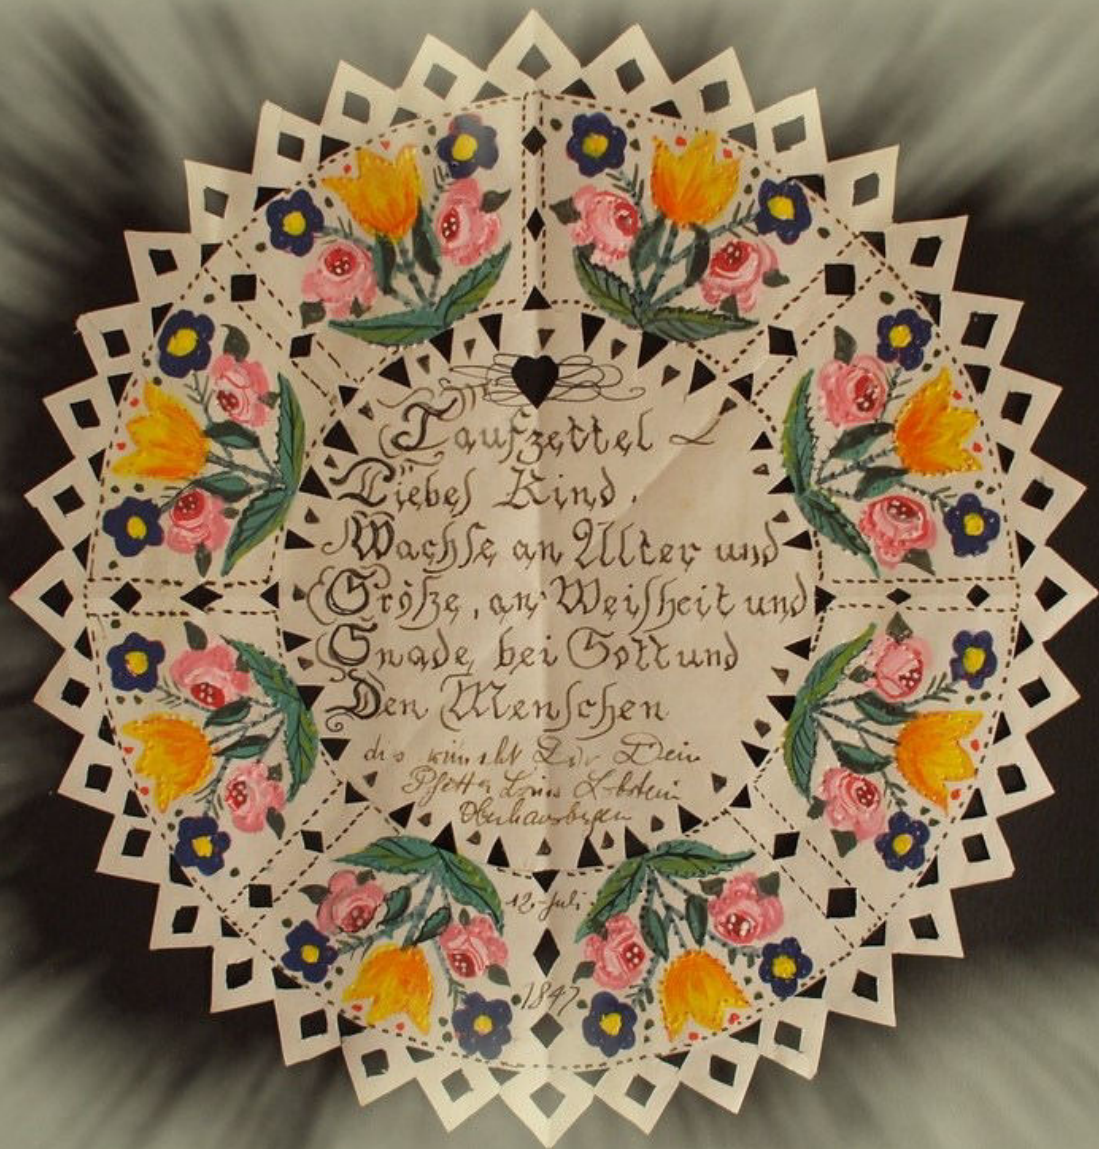 Taufzettel
Liebes Kind.
Wachse an Alter und
Größe, an Weisheit und
Gnade, bei Gott und
Den Menschen
dis wünscht Dir Dein
Pfetter Louis
Oberhausbergen
12. Juli
1847